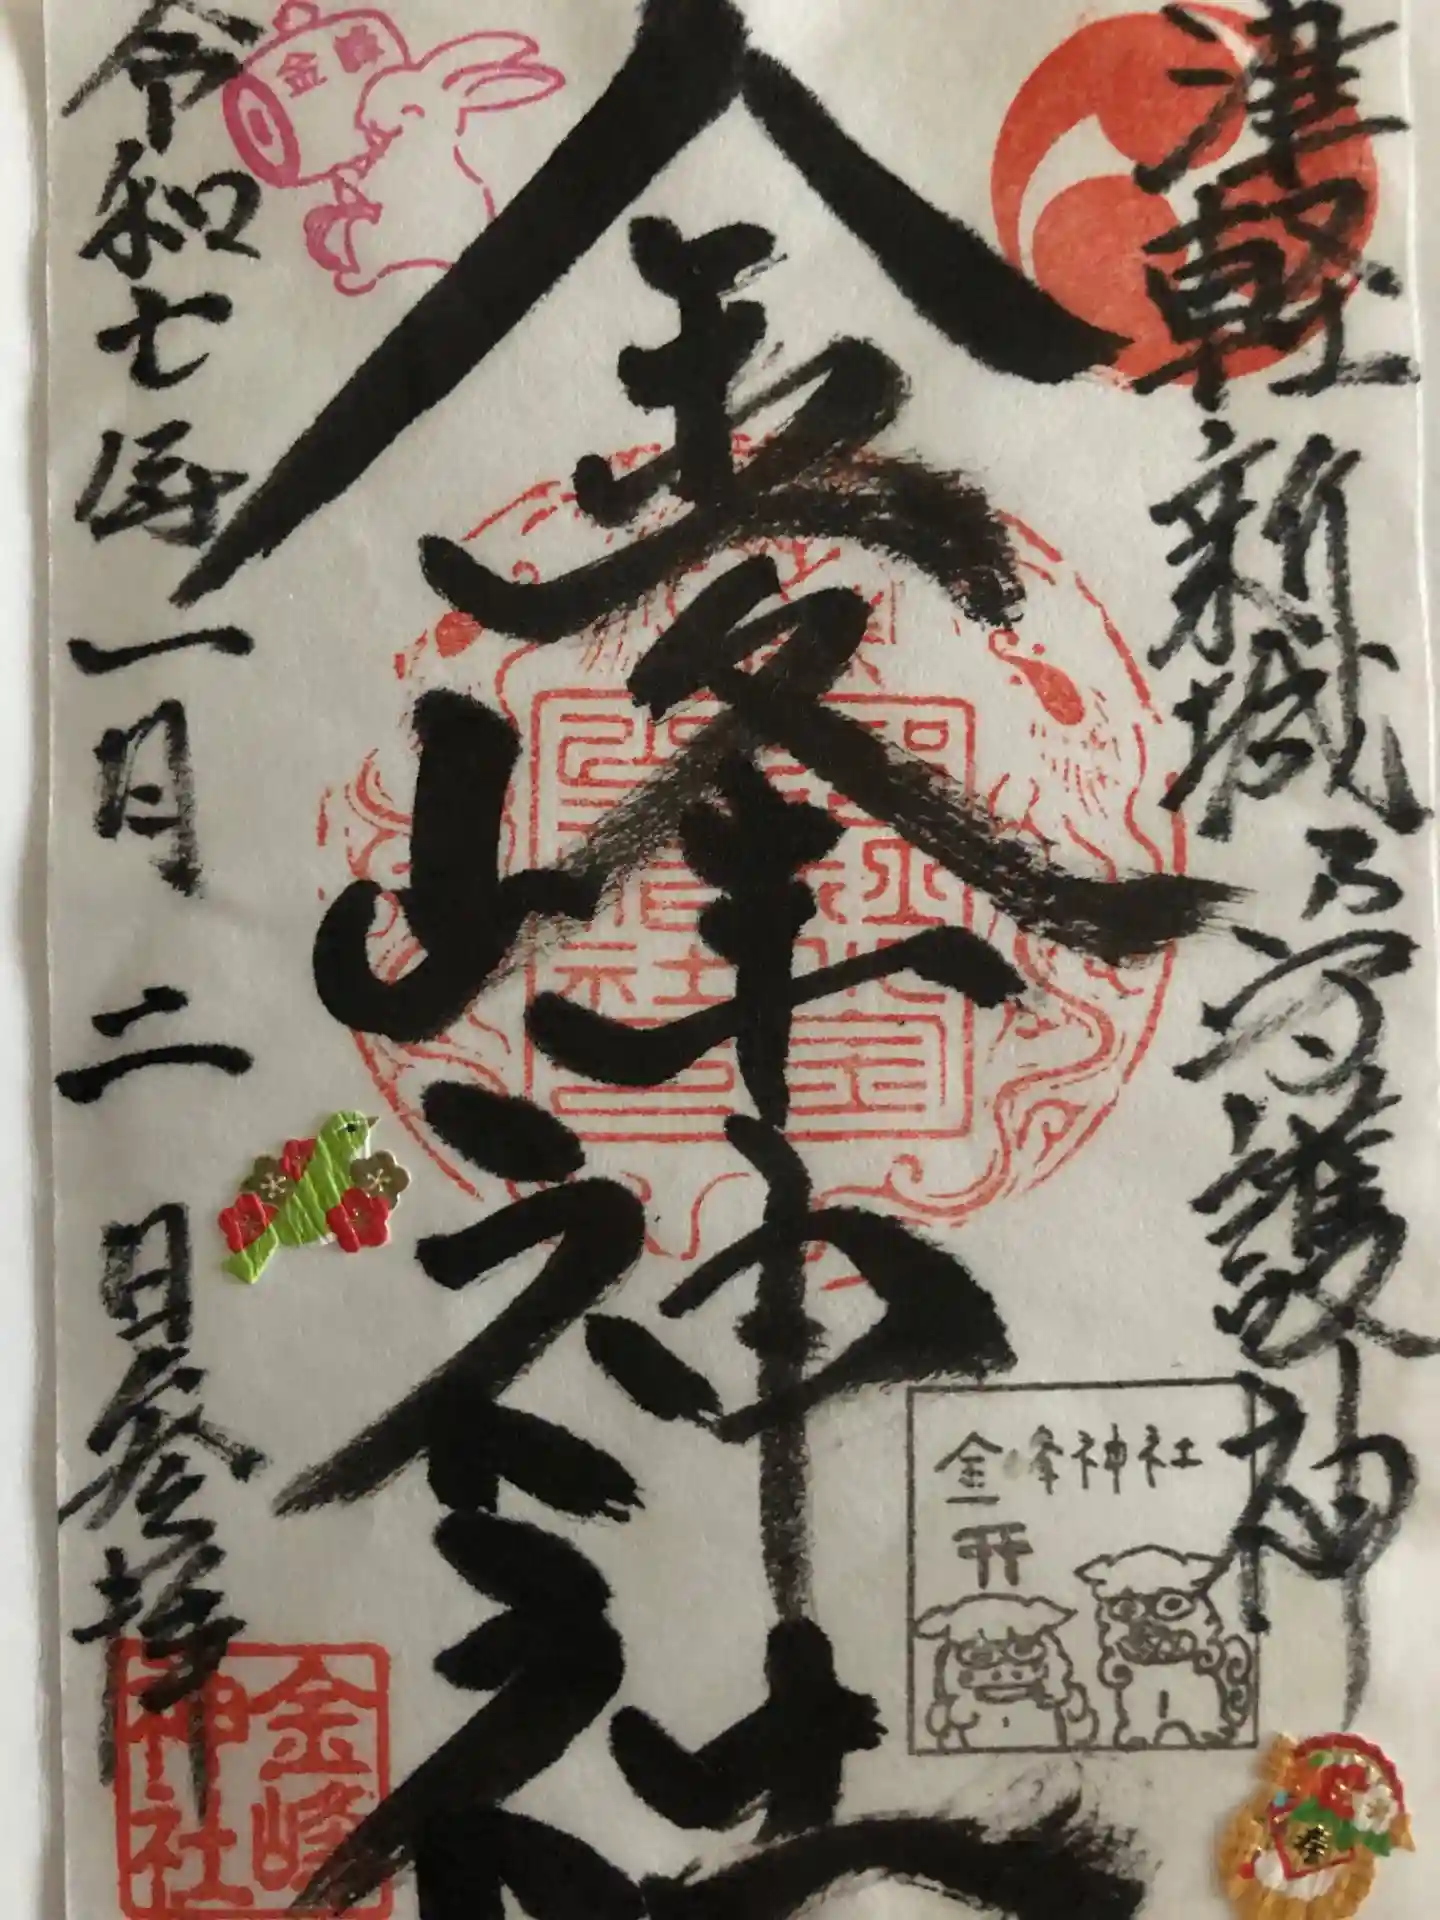 津軽新城乃守護神
金峰神社
令和七年一月二日参拝
金峰
金峰神社
金峰
神社